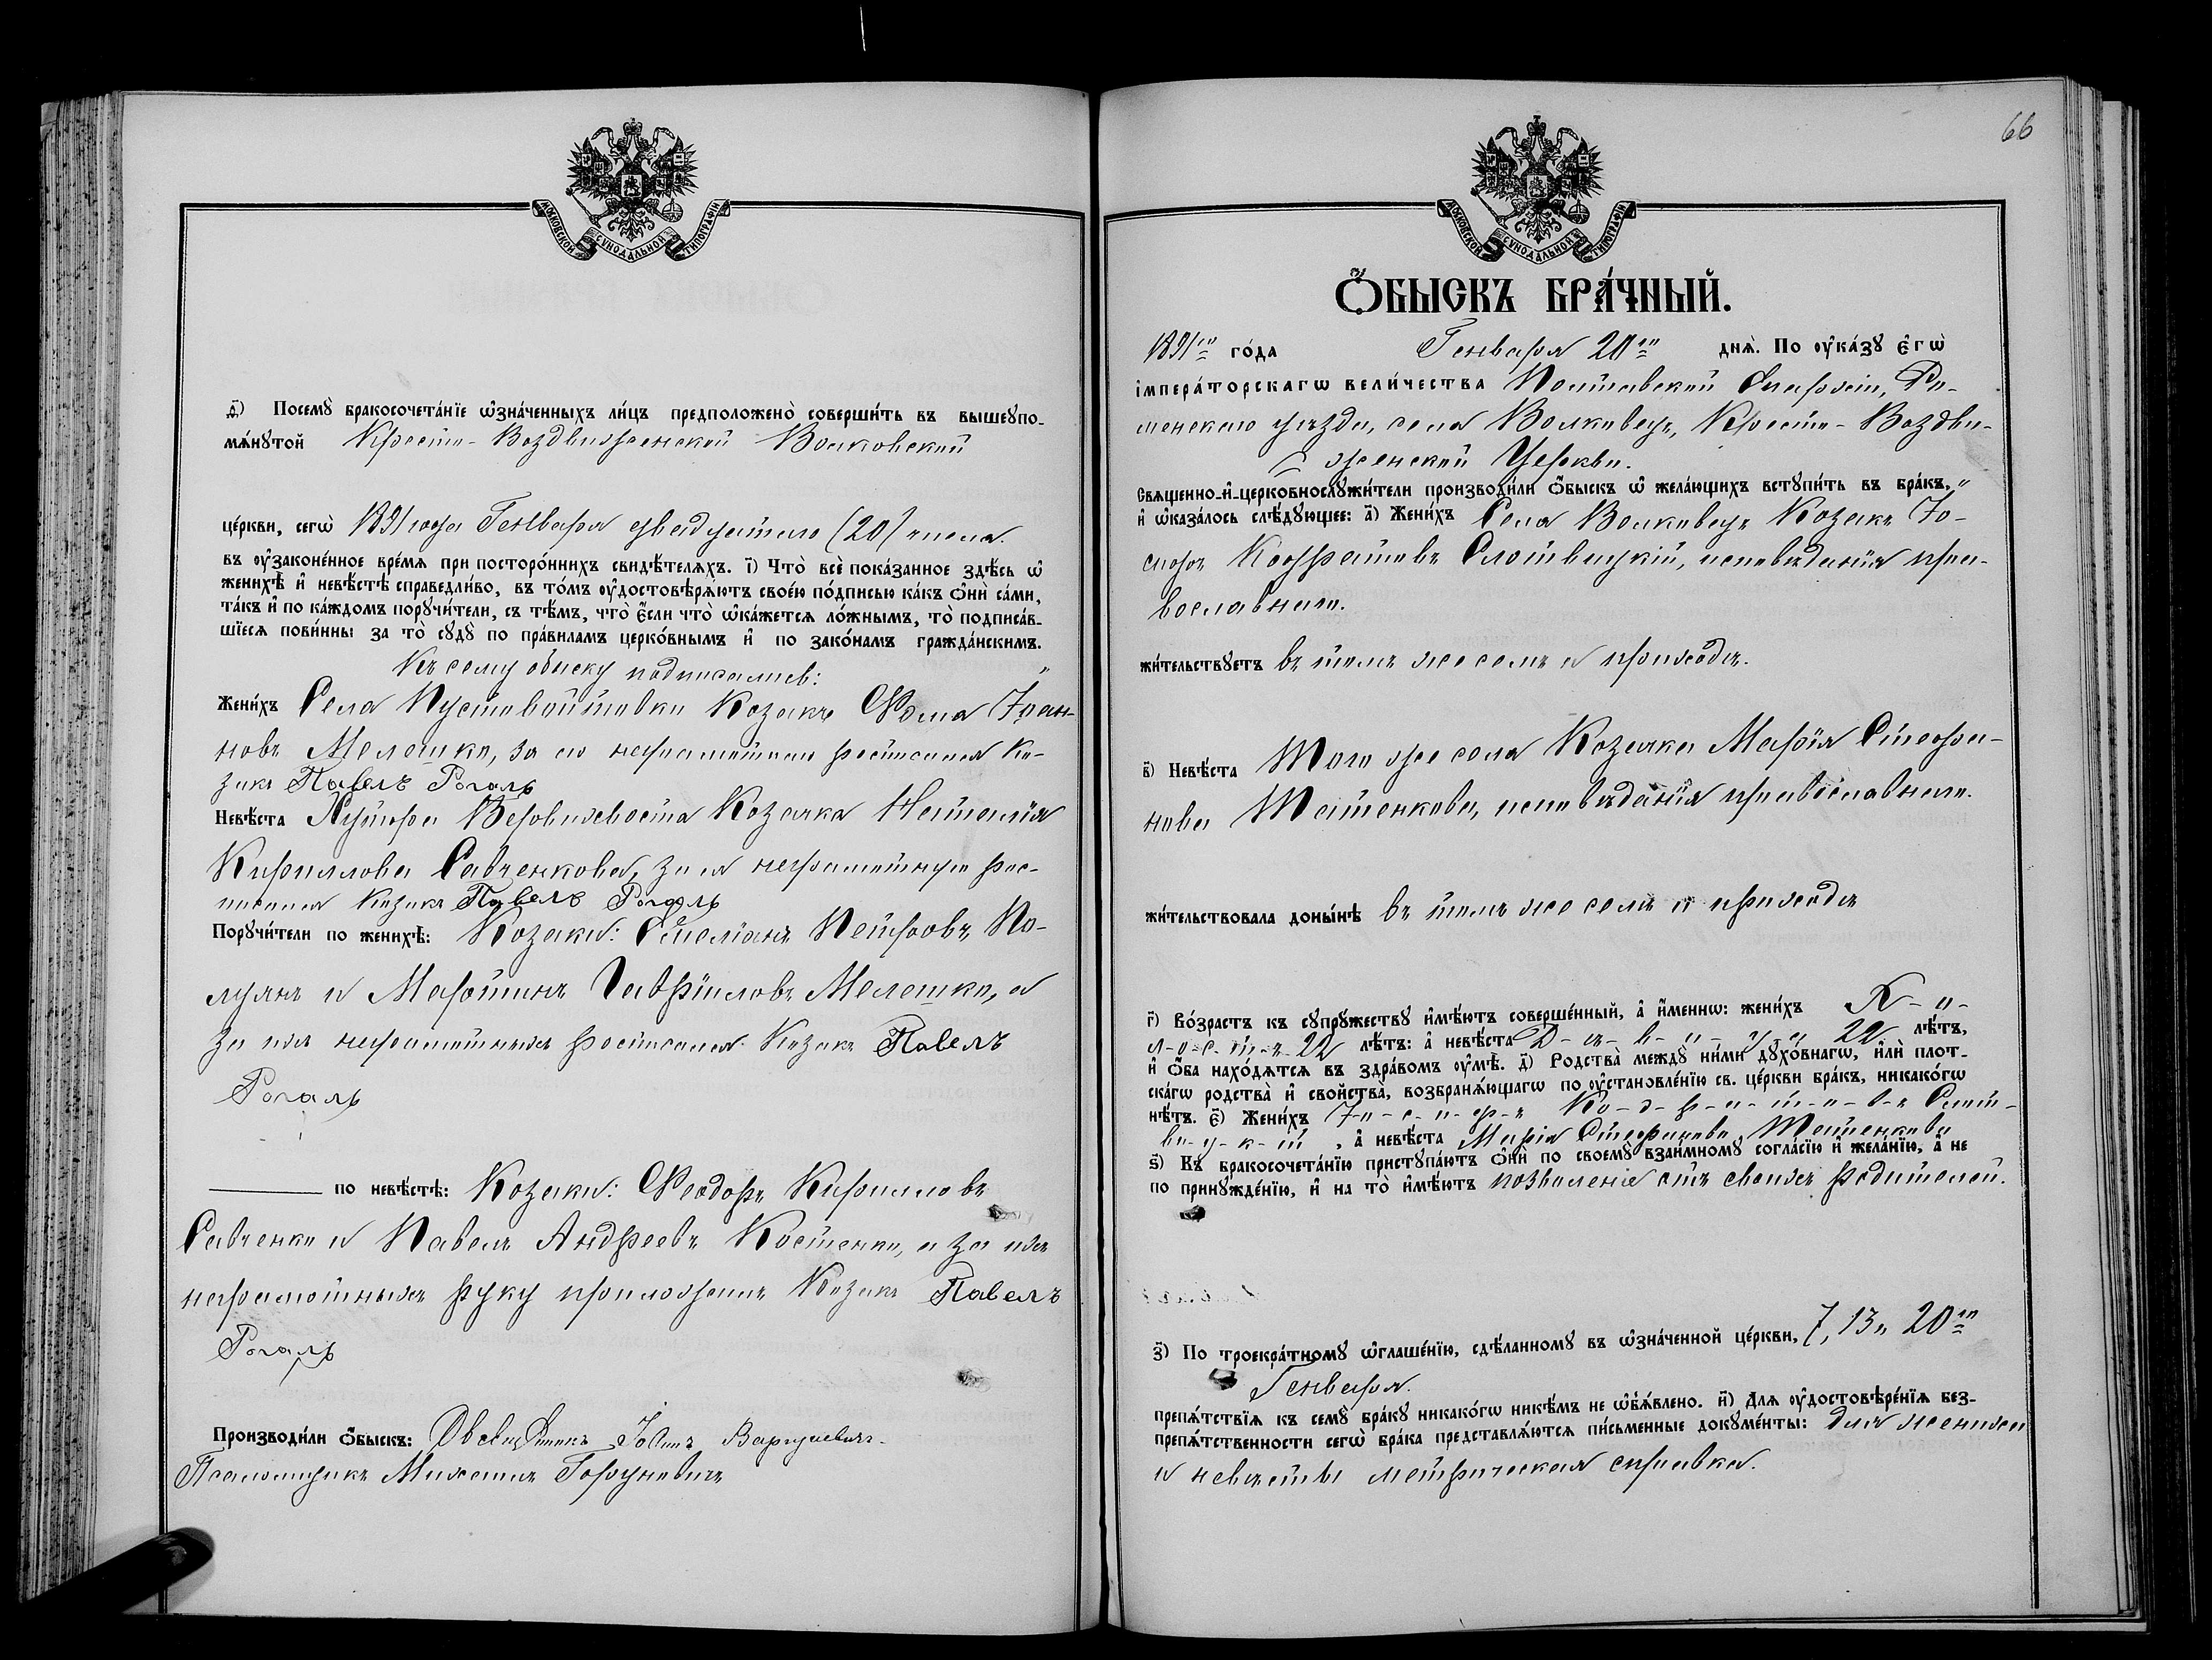 МОСКОВСКОЙ СѴНОДАЛЬНОЙ ТИПОГРАФІИ
ѳ҃) Посемꙋ̀ бракосочета́нїе ѡ҆зна́ченныхъ ли́цъ предположено̀ соверши́ть въ вышеꙋпо-
мѧ́нꙋтой Кресто-Воздвиженской Волковской
це́ркви, сегѡ̀ 1891 года Генваря двадцатаго (20) числа.
въ ᲂу҆законе́нное вре́мѧ при посторо́ннихъ свидѣ́телѧхъ. і҃) Что̀ всѐ пока́занное здѣ́сь ѡ҆
женихѣ̀ и҆ невѣ́стѣ справедли́во, въ то́мъ ᲂу҆достовѣрѧ́ютъ свое́ю по́дписью ка́къ ѻ҆нѝ са́ми,
та́къ и҆ по ка́ждомъ порꙋчи́тели, съ тѣ́мъ, что̀ є҆́сли что̀ ѡ҆ка́жетсѧ ло́жнымъ, то̀ подписа́в-
шїесѧ пови́нны за то̀ сꙋдꙋ̀ по пра́виламъ церко́внымъ и҆ по зако́намъ гражда́нскимъ.
Къ сему обыску подписались:
Жени́хъ Села Пустовойтовки Козакъ Ѳома Іоан-
новъ Мелешко, за его неграмотнаго росписался Ко-
закъ Павелъ Рогаль
Невѣ́ста Хутора Веровихвоста Козачка Наталія
Кириллова Савченкова, за ея неграмотную рос-
писался Козакъ Павелъ Рогаль
Порꙋчи́тели по женихѣ̀: Козаки: Емеліанъ Петровъ По-
луянъ и Мартинъ Гавріиловъ Мелешко, а
за ихъ неграмотныхъ росписался Козакъ Павелъ
Рогаль
по невѣ́стѣ: Козаки: Ѳеодоръ Кирилловъ
Савченко и Павелъ Андреевъ Костенко, а за ихъ
неграмотныхъ руку приложилъ Козакъ Павелъ
Рогаль
Производи́ли ѻ҆́быскъ: Іоаннъ
Псаломщикъ Михаилъ
66
МОСКОВСКОЙ СѴНОДАЛЬНОЙ ТИПОГРАФІИ
Ѻ҆́БЫСКЪ БРА́ЧНЫЙ.
1891го го́да Генваря 20го днѧ̀. По ᲂу҆ка́зꙋ є҆гѡ̀
і҆мпера́торскагѡ вели́чества Полтавской Епархіи, Ро-
менскаго уѣзда, села Волковецъ, Кресто-Воздви-
женской Церкви.
Свѧщенно-и҆-церковнослꙋжи́тели производи́ли ѻ҆́быскъ ѡ҆ жела́ющихъ встꙋпи́ть въ бра́къ,
и҆ ѡ҆каза́лось слѣ́дꙋющее: а҃) Жени́хъ Села Волковецъ Козакъ Іо-
сифъ Кодратовъ Слотвицкій, исповѣданія пра-
вославнаго.
жи́тельствꙋетъ въ томъ же селѣ и приходѣ.
в҃) Невѣ́ста Того же села Козачка Марія Стефа-
нова Шатенкова, исповѣданія православнаго.
жи́тельствовала доны́нѣ въ томъ же селѣ и приходѣ
г҃) Во́зрастъ къ сꙋпрꙋ́жествꙋ и҆мѣ́ютъ соверше́нный, а҆ и҆́меннѡ: жени́хъ
22 лѣ́тъ: а҆ невѣ́ста 22 лѣ́тъ,
и҆ ѻ҆́ба нахо́дѧтсѧ въ здра́вомъ ᲂу҆мѣ̀. д҃) Родства̀ междꙋ̀ ни́ми дꙋхо́внагѡ, и҆лѝ плот-
ска́гѡ родства̀ и҆ свойства̀, возбранѧ́ющагѡ по ᲂу҆становле́нїю св. це́ркви бра́къ, никако́гѡ
нѣ́тъ. є҃) Жени́хъ І-о-с-и-ф-ъ Ко-д-р-а-т-о-в-ъ Слот-
ви-ц-к-ій, а҆ невѣ́ста Марія Стефанова Шатенкова
ѕ҃) Къ бракосочета́нїю пристꙋпа́ютъ ѻ҆нѝ по своемꙋ̀ взаи́мномꙋ согла́сїю и҆ жела́нїю, а҆ не
по принꙋжде́нїю, и҆ на то̀ и҆мѣ́ютъ позволеніе отъ своихъ родителей.
з҃) По троекра́тномꙋ ѡ҆глаше́нїю, сдѣ́ланномꙋ въ ѡ҆зна́ченной це́ркви, 7, 13 и 20го
Генваря.
препѧ́тствїѧ къ семꙋ̀ бра́кꙋ никако́гѡ никѣ́мъ не ѡ҆б̾ѧ́влено. и҃) Длѧ ᲂу҆достовѣре́нїѧ без-
препѧ́тственности сегѡ̀ бра́ка представлѧ́ютсѧ пи́сьменные докꙋме́нты: для жениха
и невѣсты метрическая справка.